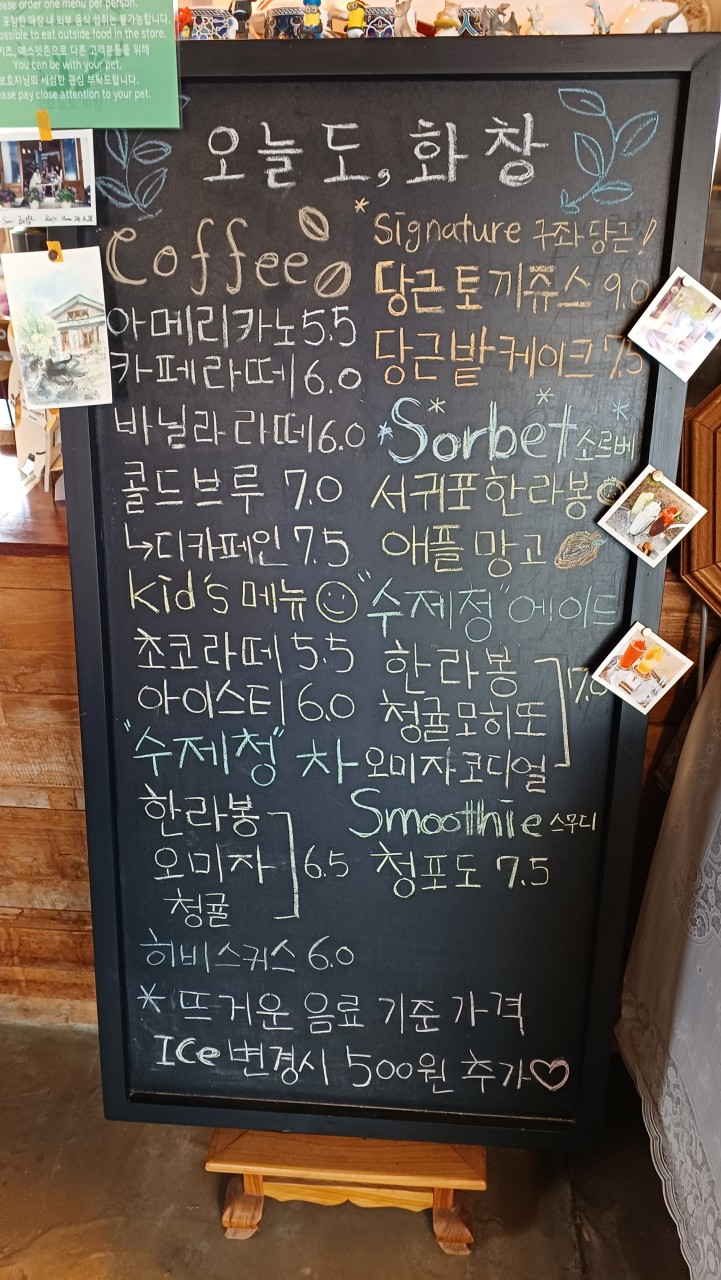 ease order one menu per person.
포함한 매장 내 외부 음식 섭취는 불가능합니다.
ossible to eat outside food in the store.
You can be with your pet.
보호자님의 세심한 관심 부탁드립니다.
ease pay close attention to your pet.
오늘도, 화창
Coffee
아메리카노 5.5
카페라떼 6.0
바닐라 라떼 6.0
콜드브루 7.0
↳디카페인 7.5
kid's 메뉴
초코라떼 5.5
아이스티 6.0
"수제청" 차
한라봉
오미자
청귤
6.5
히비스커스 6.0
*signature 구좌당근!
당근토끼쥬스 9.0
당근밭케이크 7.5
*Sorbet* 소르베
서귀포한라봉
애플망고
"수제청" 에이드
한라봉
청귤모히또
오미자코디얼
7.0
Smoothie 스무디
청포도 7.5
* 뜨거운 음료 기준 가격
Ice 변경시 500원 추가♡